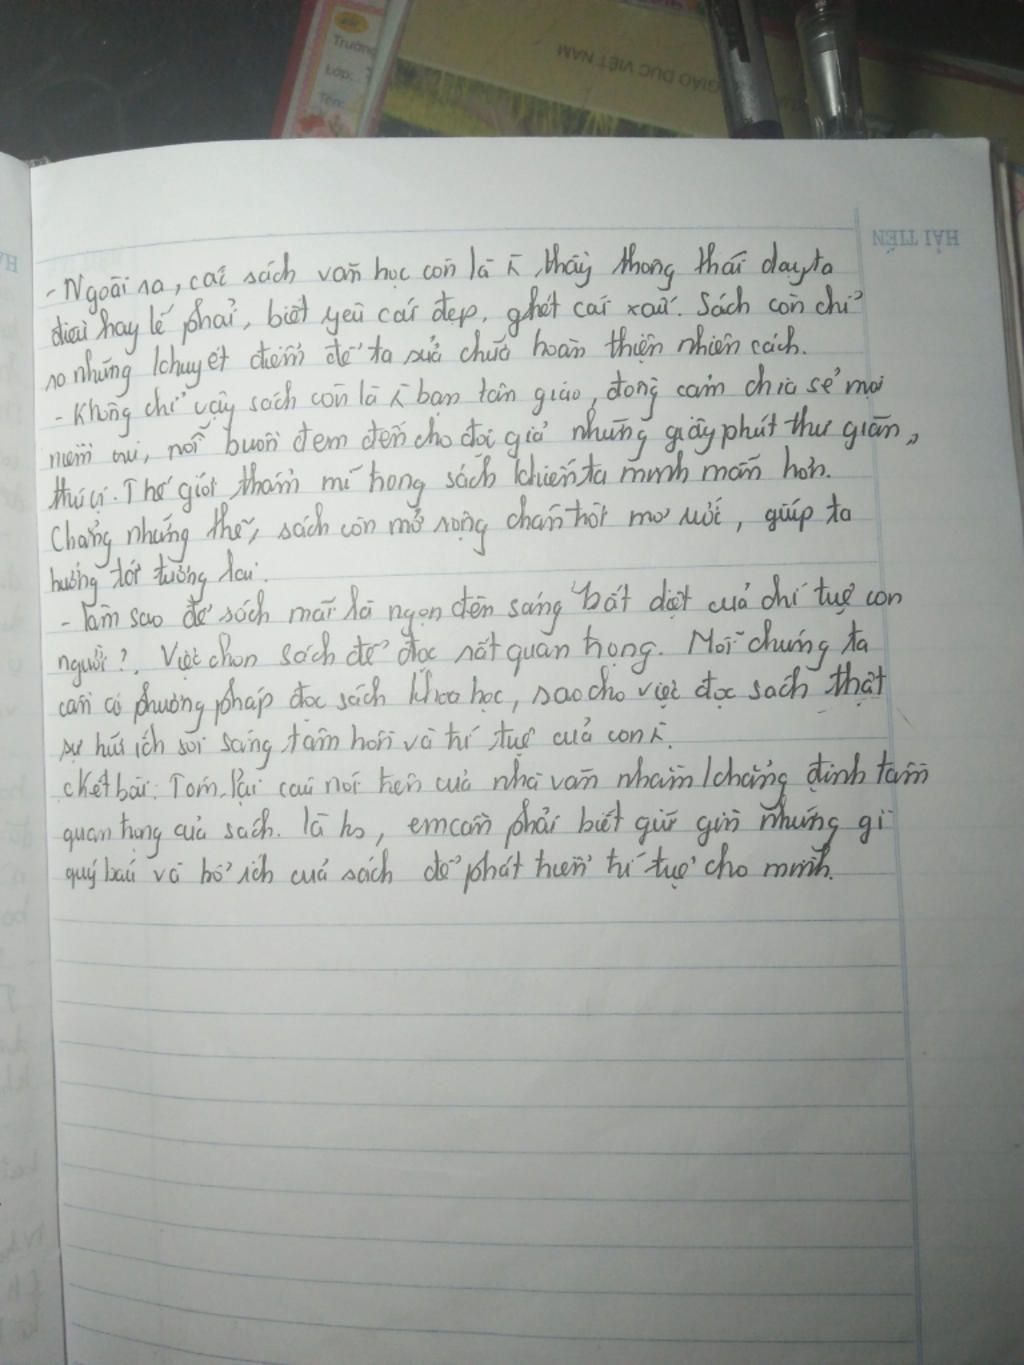 Trường
Lớp: 7
Tên:
GIÁO DỤC VIỆT NAM
HẢI TIẾN
- Ngoài ra, cái sách văn học còn là thầy thong thái dạy ta
điều hay lẽ phải, biết yêu cái đẹp, ghét cái xấu. Sách còn chỉ
ra những khuyết điểm để ta sửa chữa hoàn thiện nhiên cách.
- Không chỉ vậy sách còn là bạn tân giáo, đồng cảm chia sẻ mọi
niềm vui, nỗi buồn đem đến cho đọc giả những giây phút thư giãn,
thú vị. Thế giới thẩm mĩ trong sách khiến ta minh mẫn hơn.
Chẳng những thế, sách còn mở rộng chân trời mơ ước, giúp ta
hướng tới tương lai.
- Làm sao để sách mãi là ngọn đèn sáng bất diệt của chí tuệ con
người?. Việc chọn sách để đọc rất quan trọng. Mỗi chúng ta
cần có phương pháp đọc sách khoa học, sao cho việc đọc sách thật
sự hữu ích soi sáng tâm hồn và trí tuệ của con
c Kết bài: Tóm lại câu nói trên của nhà văn nhằm khẳng định tầm
quan trọng của sách. là hs, em cần phải biết giữ gìn những gì
quý báu và bổ ích của sách để phát triển trí tuệ cho mình.